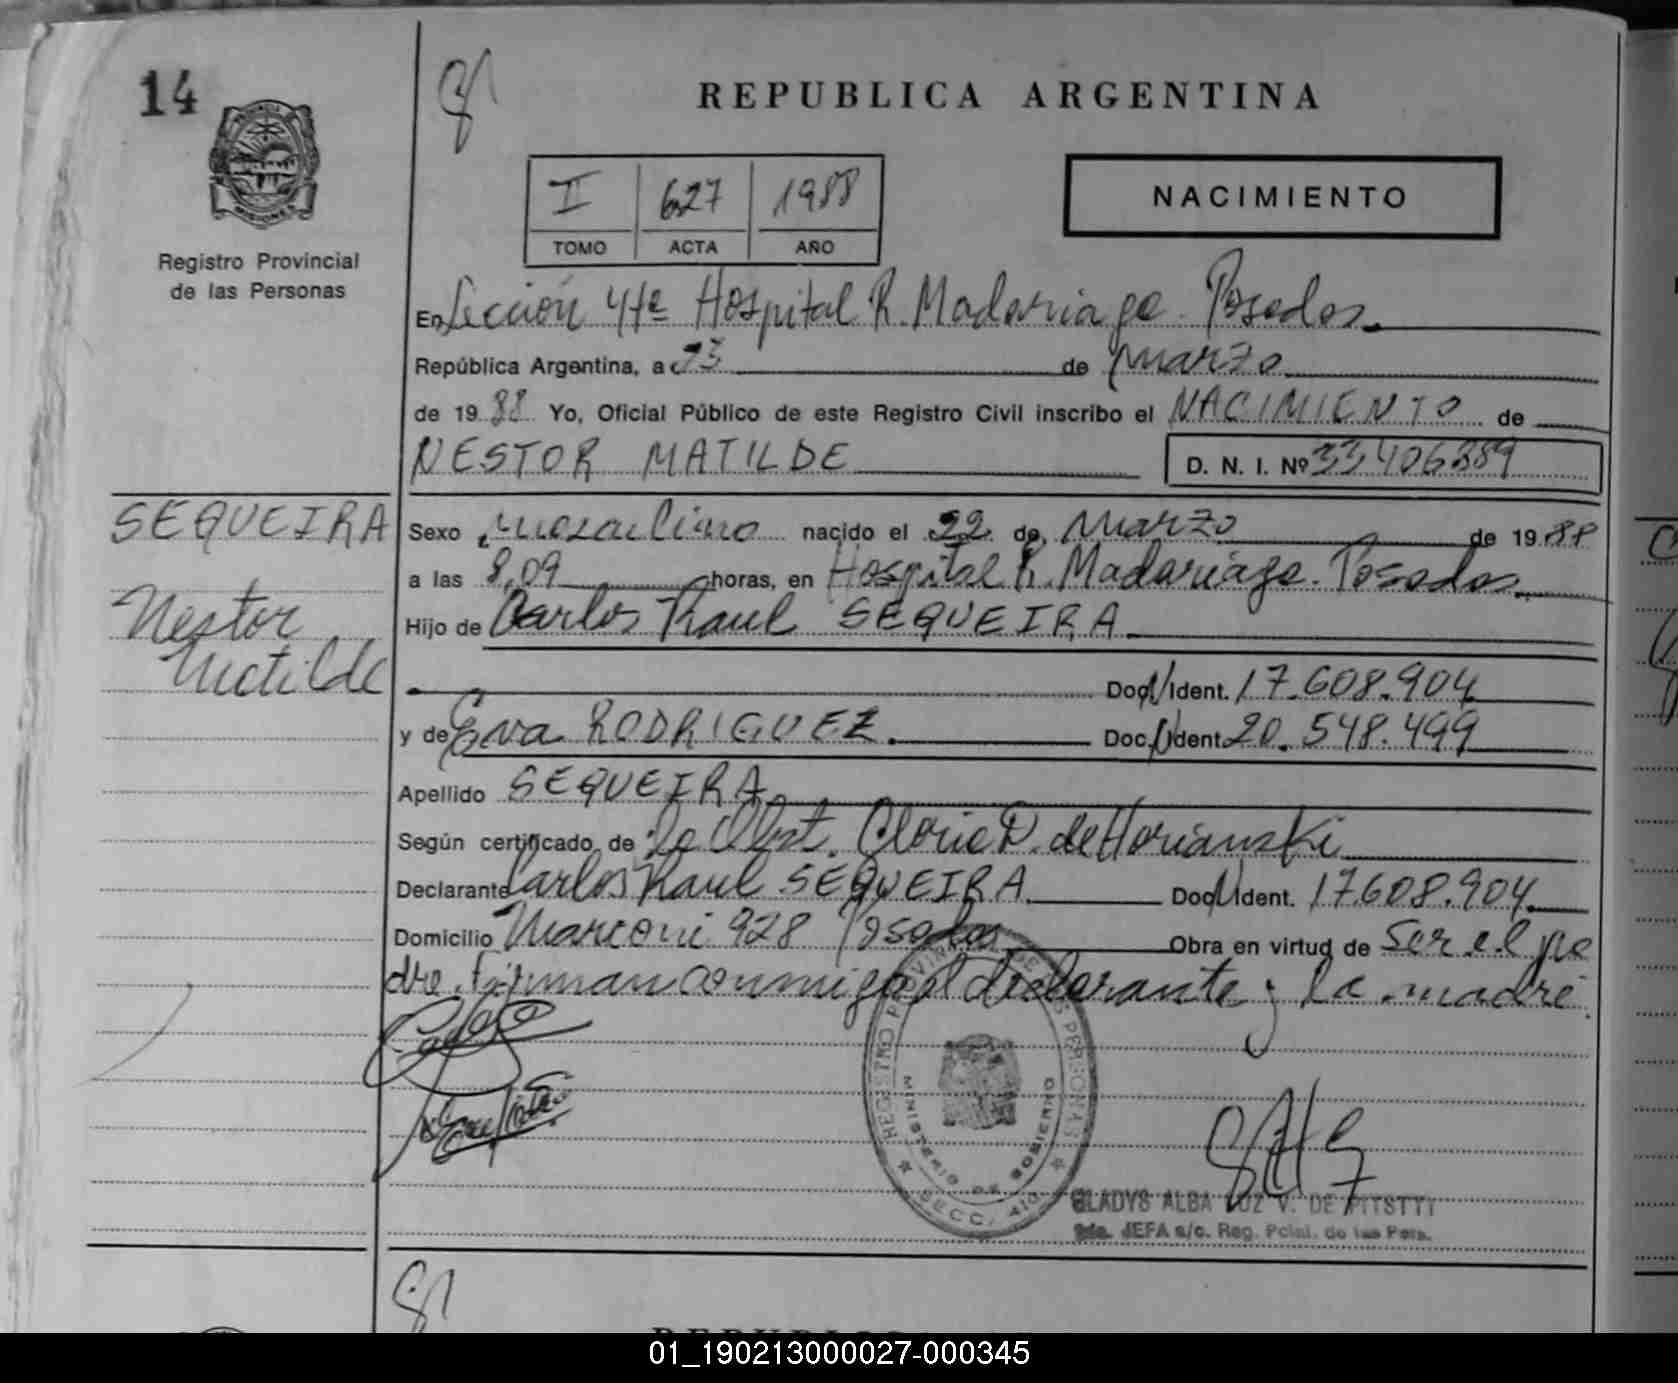 14
REPUBLICA ARGENTINA
PROVINCIA
MISIONES
II 627 1988
TOMO ACTA AÑO
NACIMIENTO
Registro Provincial
de las Personas
En Sección 4ta Hospital R. Madariaga. Posadas.
República Argentina, a 23 de marzo
de 1988 Yo, Oficial Público de este Registro Civil inscribo el NACIMIENTO de
NESTOR MATILDE D. N. I. Nº 33406389
SEQUEIRA
Nestor
Matilde
Sexo masculino nacido el 22 de marzo de 1988
a las 8,09 horas, en Hospital R. Madariaga. Posadas.
Hijo de Carlos Raul SEQUEIRA.
Doc. Ident. 17.608.904
y de Eva RODRIGUEZ. Doc. Ident. 20.548.499
Apellido SEQUEIRA
Según certificado de la Obst. Gloria D. de Horianski
Declarante Carlos Raul SEQUEIRA. Doc. Ident. 17.608.904
Domicilio Marconi 928 Posadas Obra en virtud de Ser el pa
dre. Firman conmigo el declarante y la madre.
REGISTRO PROVINCIAL DE LAS PERSONAS
MINISTERIO DE GOBIERNO
SECC. 4ta
GLADYS ALBA LUZ V. DE
JEFA a/c. Reg. Pcial. de las Pers.
01_190213000027-000345